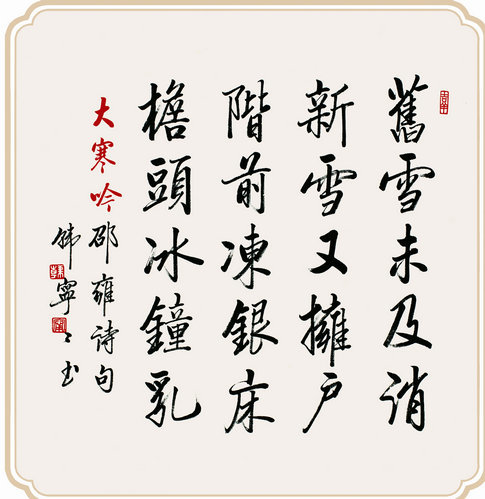 舊雪未及消
新雪又擁户
階前凍銀床
檐頭冰鐘乳
大寒吟邵雍诗句
韩寧〻书